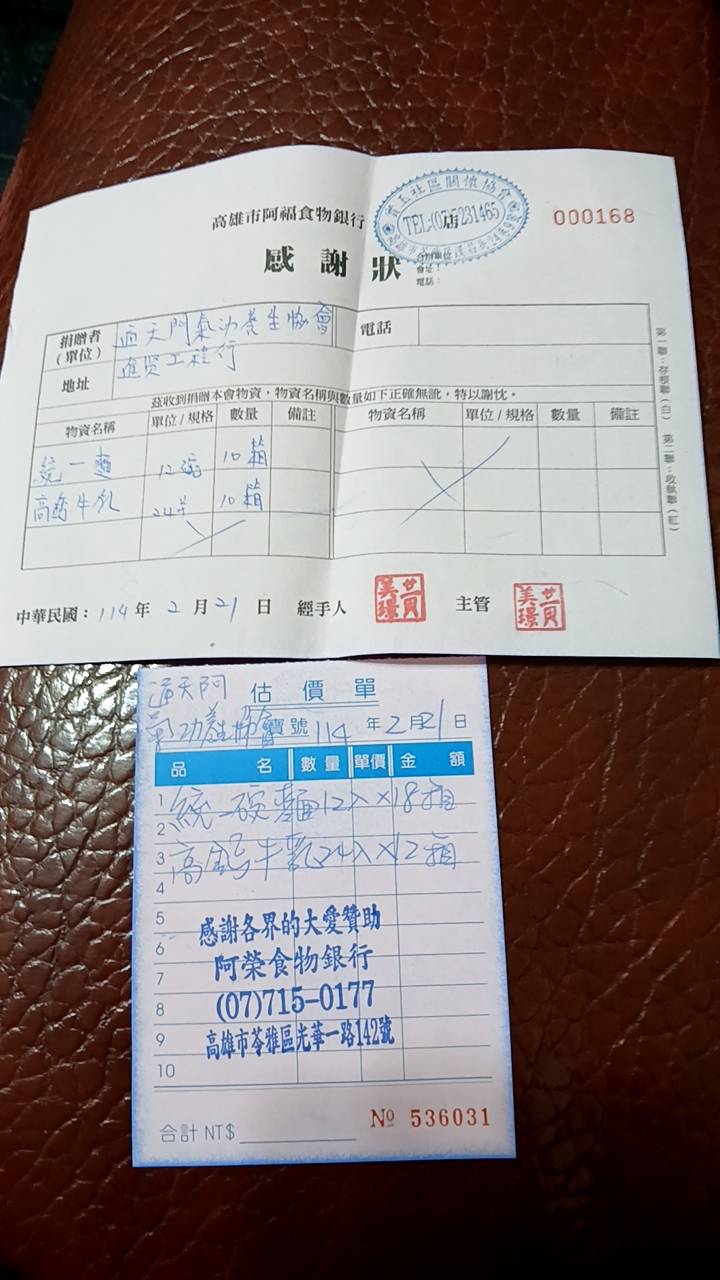 高雄市阿福食物銀行
店
000168
TEL:(07)5231465
感謝狀
會址:
電話:
捐贈者
(單位)
通天門氣功養生協會
進贤工程行
電話
地址
茲收到捐贈本會物資,物資名稱與數量如下正確無訛,特以謝忱。
物資名稱 單位/規格 數量 備註 物資名稱 單位/規格 數量 備註
統一麵 10箱
高鈣牛乳 10箱
第一聯:存根聯(白) 第二聯:收執聯(紅)
中華民國:114年2月21日 經手人 主管
估價單
氣功養生協會 寶號 114年2月21日
品名 數量 單價 金額
1 統一碗麵12入×18箱
2
3 高鈣牛乳24入×12箱
4
5
6
7
8
9
10
感謝各界的大愛贊助
阿榮食物銀行
(07)715-0177
高雄市苓雅區光華一路142號
合計 NT$
№ 536031